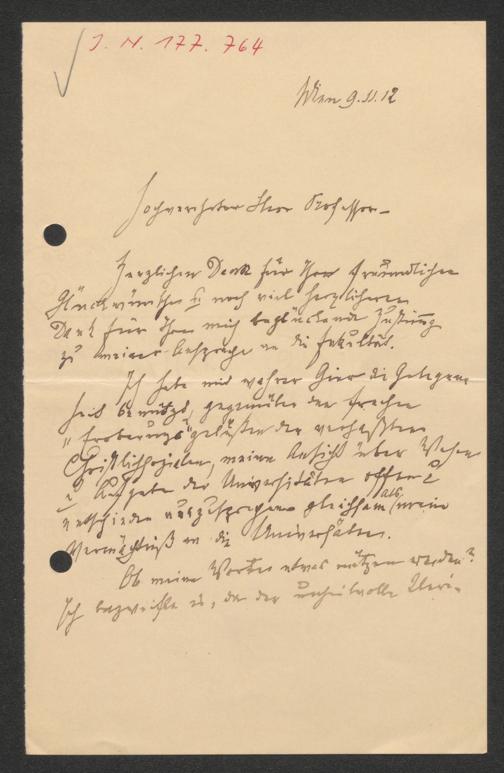 J. N. 177.764
Wien 9.11.12
Hochverehrter Herr Professor
Herzlichen Dank für Ihre freundlichen
Glückwünsche u. noch viel herzlicheren
Dank für Ihre mich beglückende Zustimmung
zu meiner Ansprache an die Fakultät.
Ich habe mit wahrer Gier die Gelegen-
heit benützt, gegenüber den frechen
"Eroberungs"gelüsten der verhaßten
Christlichsozialen, meine Ansicht über Wesen
u. Aufgabe der Universitäten offen u.
entschieden auszusprechen gleichsam als meine
Vermächtniß an die Universitäten.
Ob meine Worte etwas nützen werden?
Ich bezweifle es, da der unheilvolle Kleri-